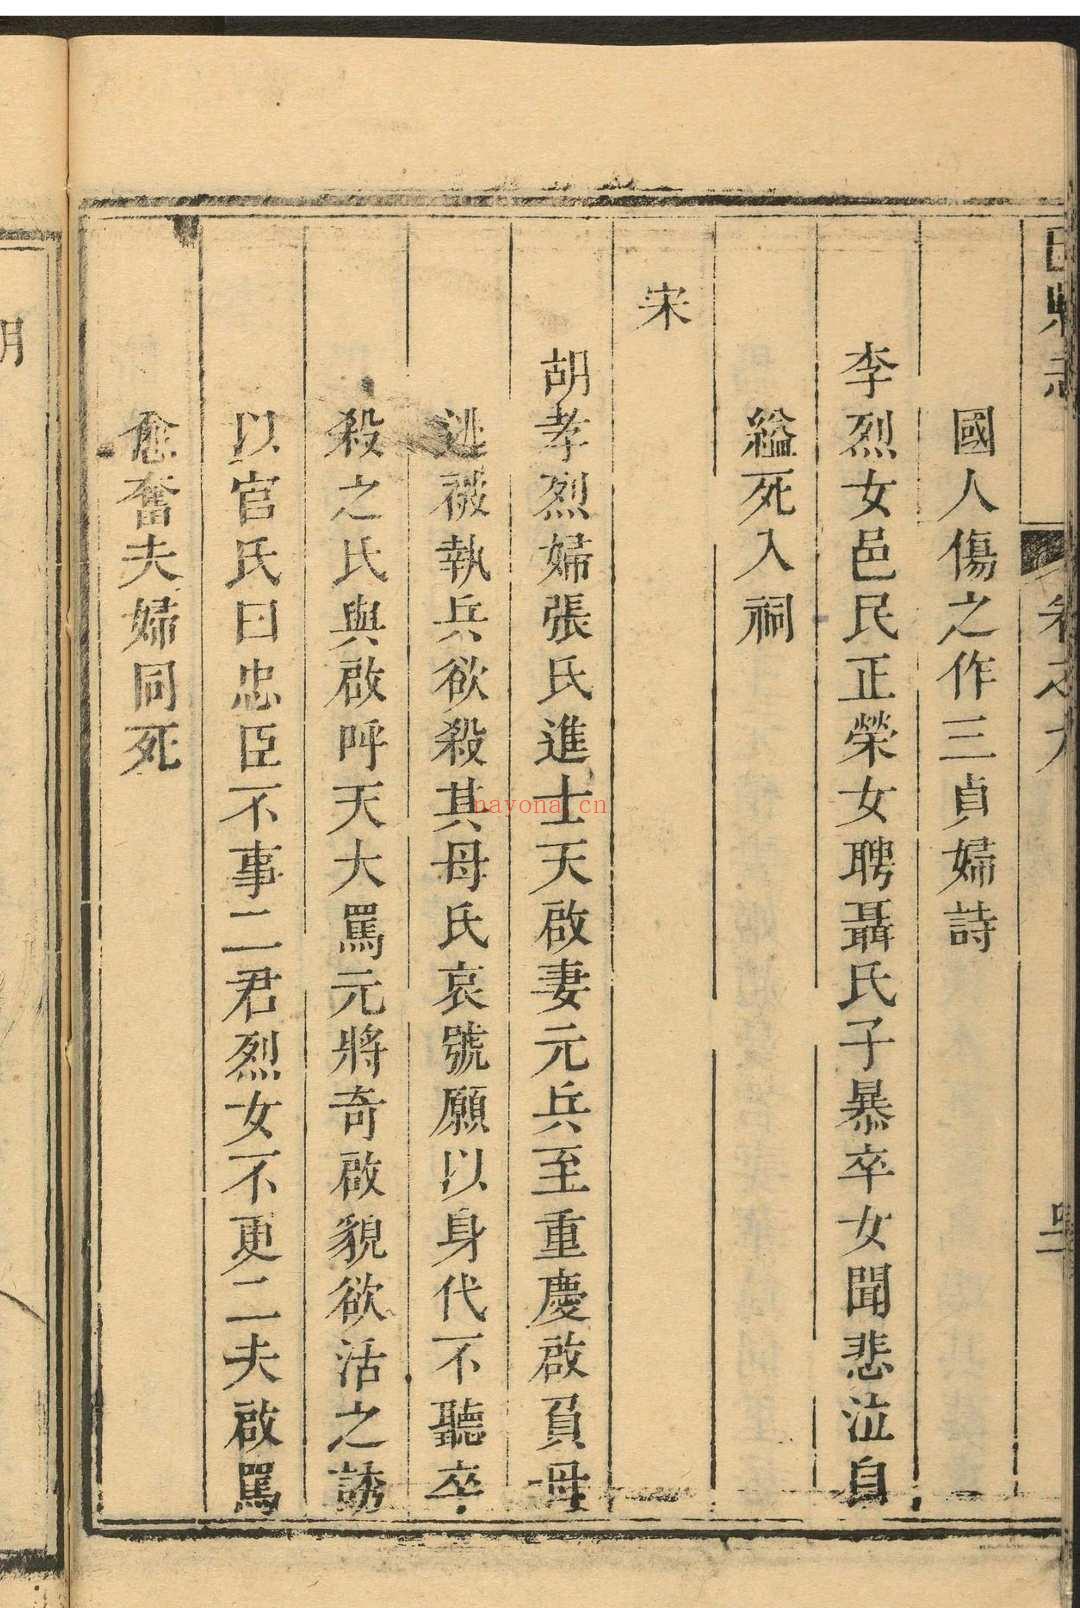 國人傷之作三貞婦詩
李烈女邑民正榮女聘聶氏子暴卒女聞悲泣自
縊死入祠
宋
胡孝烈婦張氏進士天啟妻元兵至重慶啟負母
逃被執兵欲殺其母氏哀號願以身代不聽卒
殺之氏與啟呼天大罵元將奇啟貌欲活之誘
以官氏曰忠臣不事二君烈女不更二夫啟罵
愈奮夫婦同死
nayona.cn